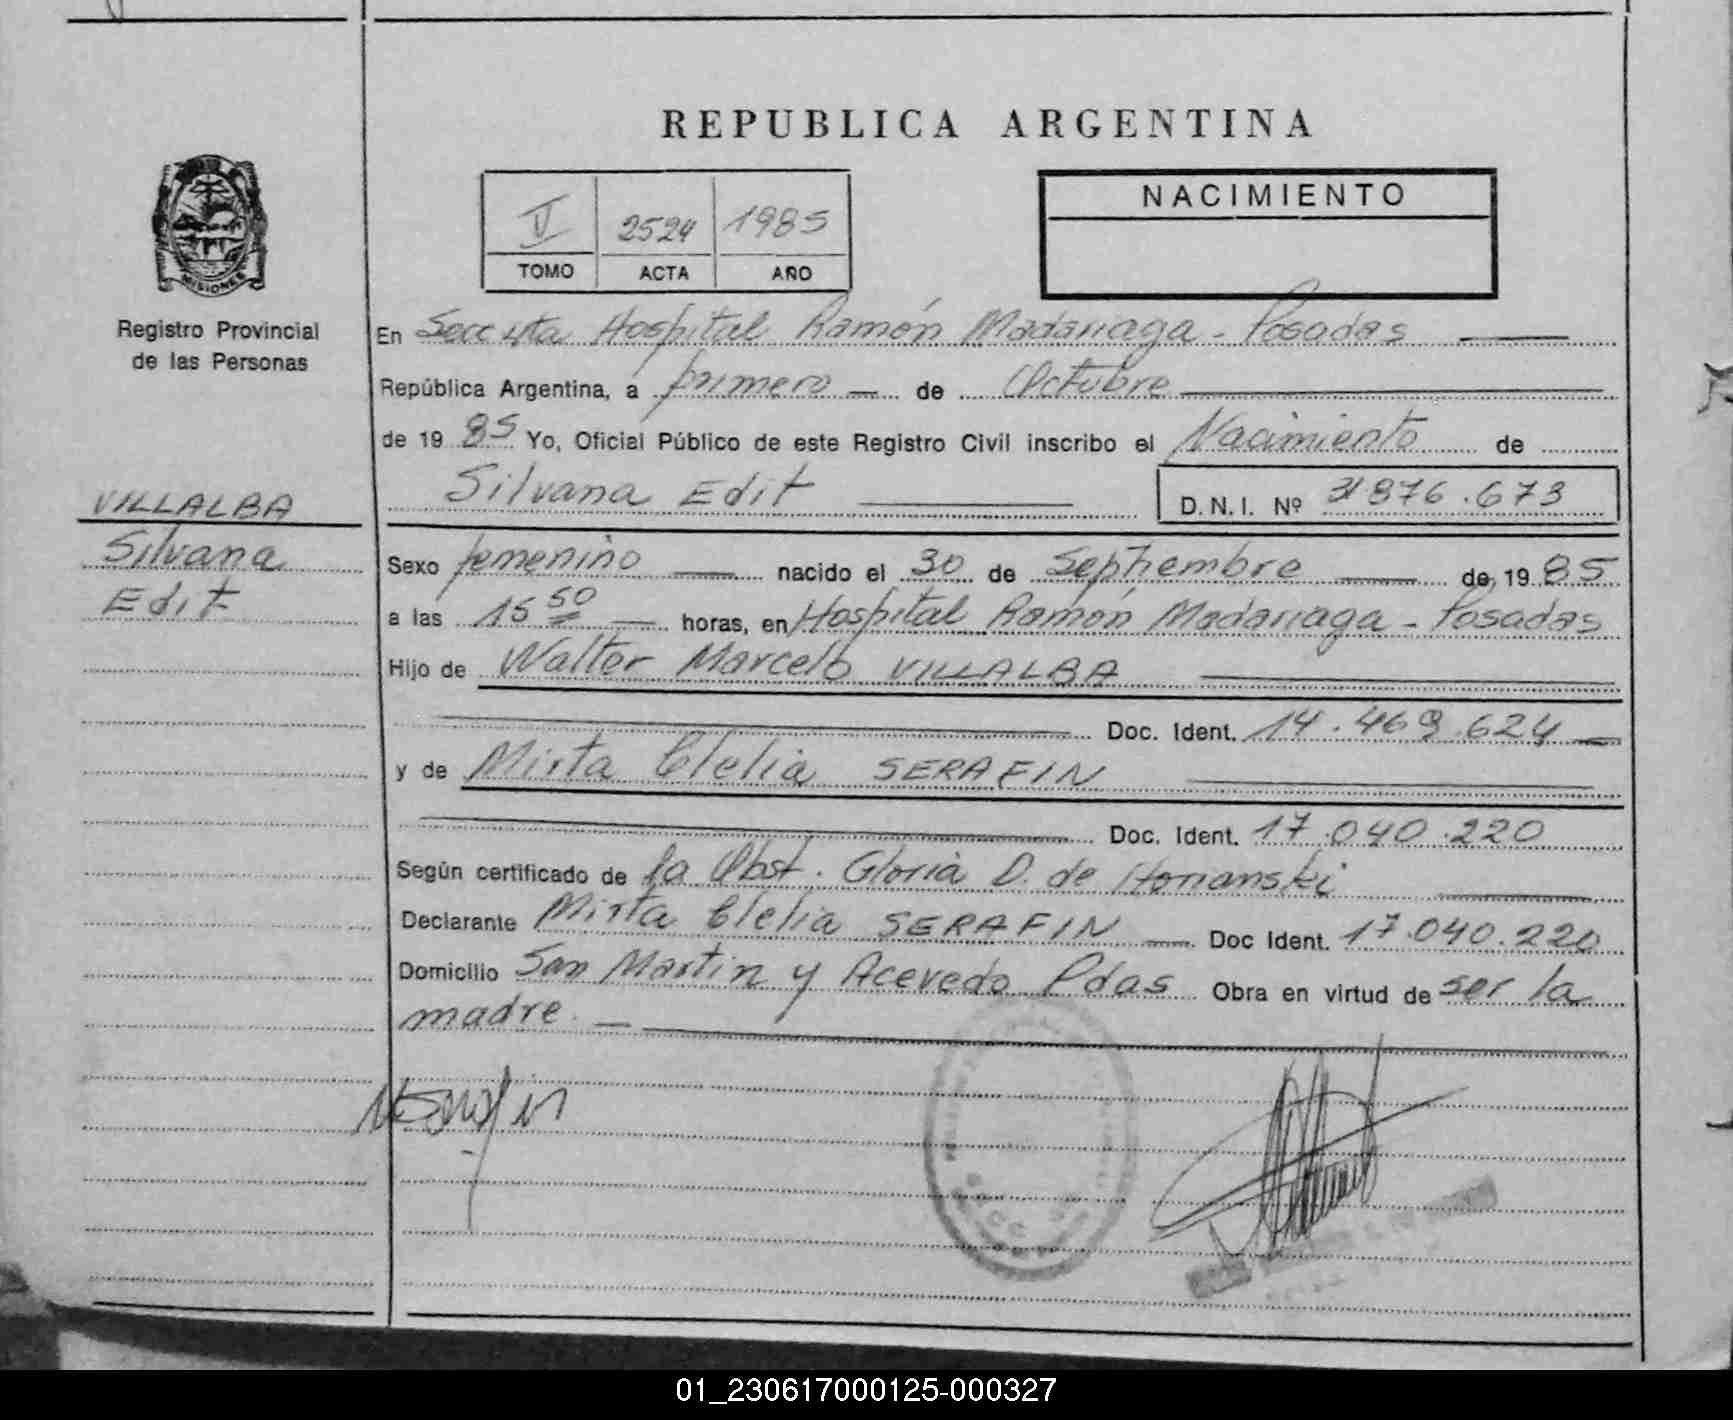 REPUBLICA ARGENTINA
MISIONES
Registro Provincial
de las Personas
V 2524 1985
TOMO ACTA AÑO
NACIMIENTO
En Secc 4ta Hospital Ramón Madariaga - Posadas
República Argentina, a primero de Octubre
de 1985 Yo, Oficial Público de este Registro Civil inscribo el Nacimiento de
Silvana Edit D.N.I. Nº 31876.673
VILLALBA
Silvana
Edit
Sexo femenino nacido el 30 de Septiembre de 1985
a las 15 50 horas, en Hospital Ramón Madariaga - Posadas
Hijo de Walter Marcelo VILLALBA
Doc. Ident. 14.469.624
y de Mirta Clelia SERAFIN
Doc. Ident. 17.040.220
Según certificado de la Obst. Gloria D. de
Declarante Mirta Clelia SERAFIN Doc Ident. 17.040.220
Domicilio San Martin y Acevedo Pdas Obra en virtud de ser la
madre.
01_230617000125-000327